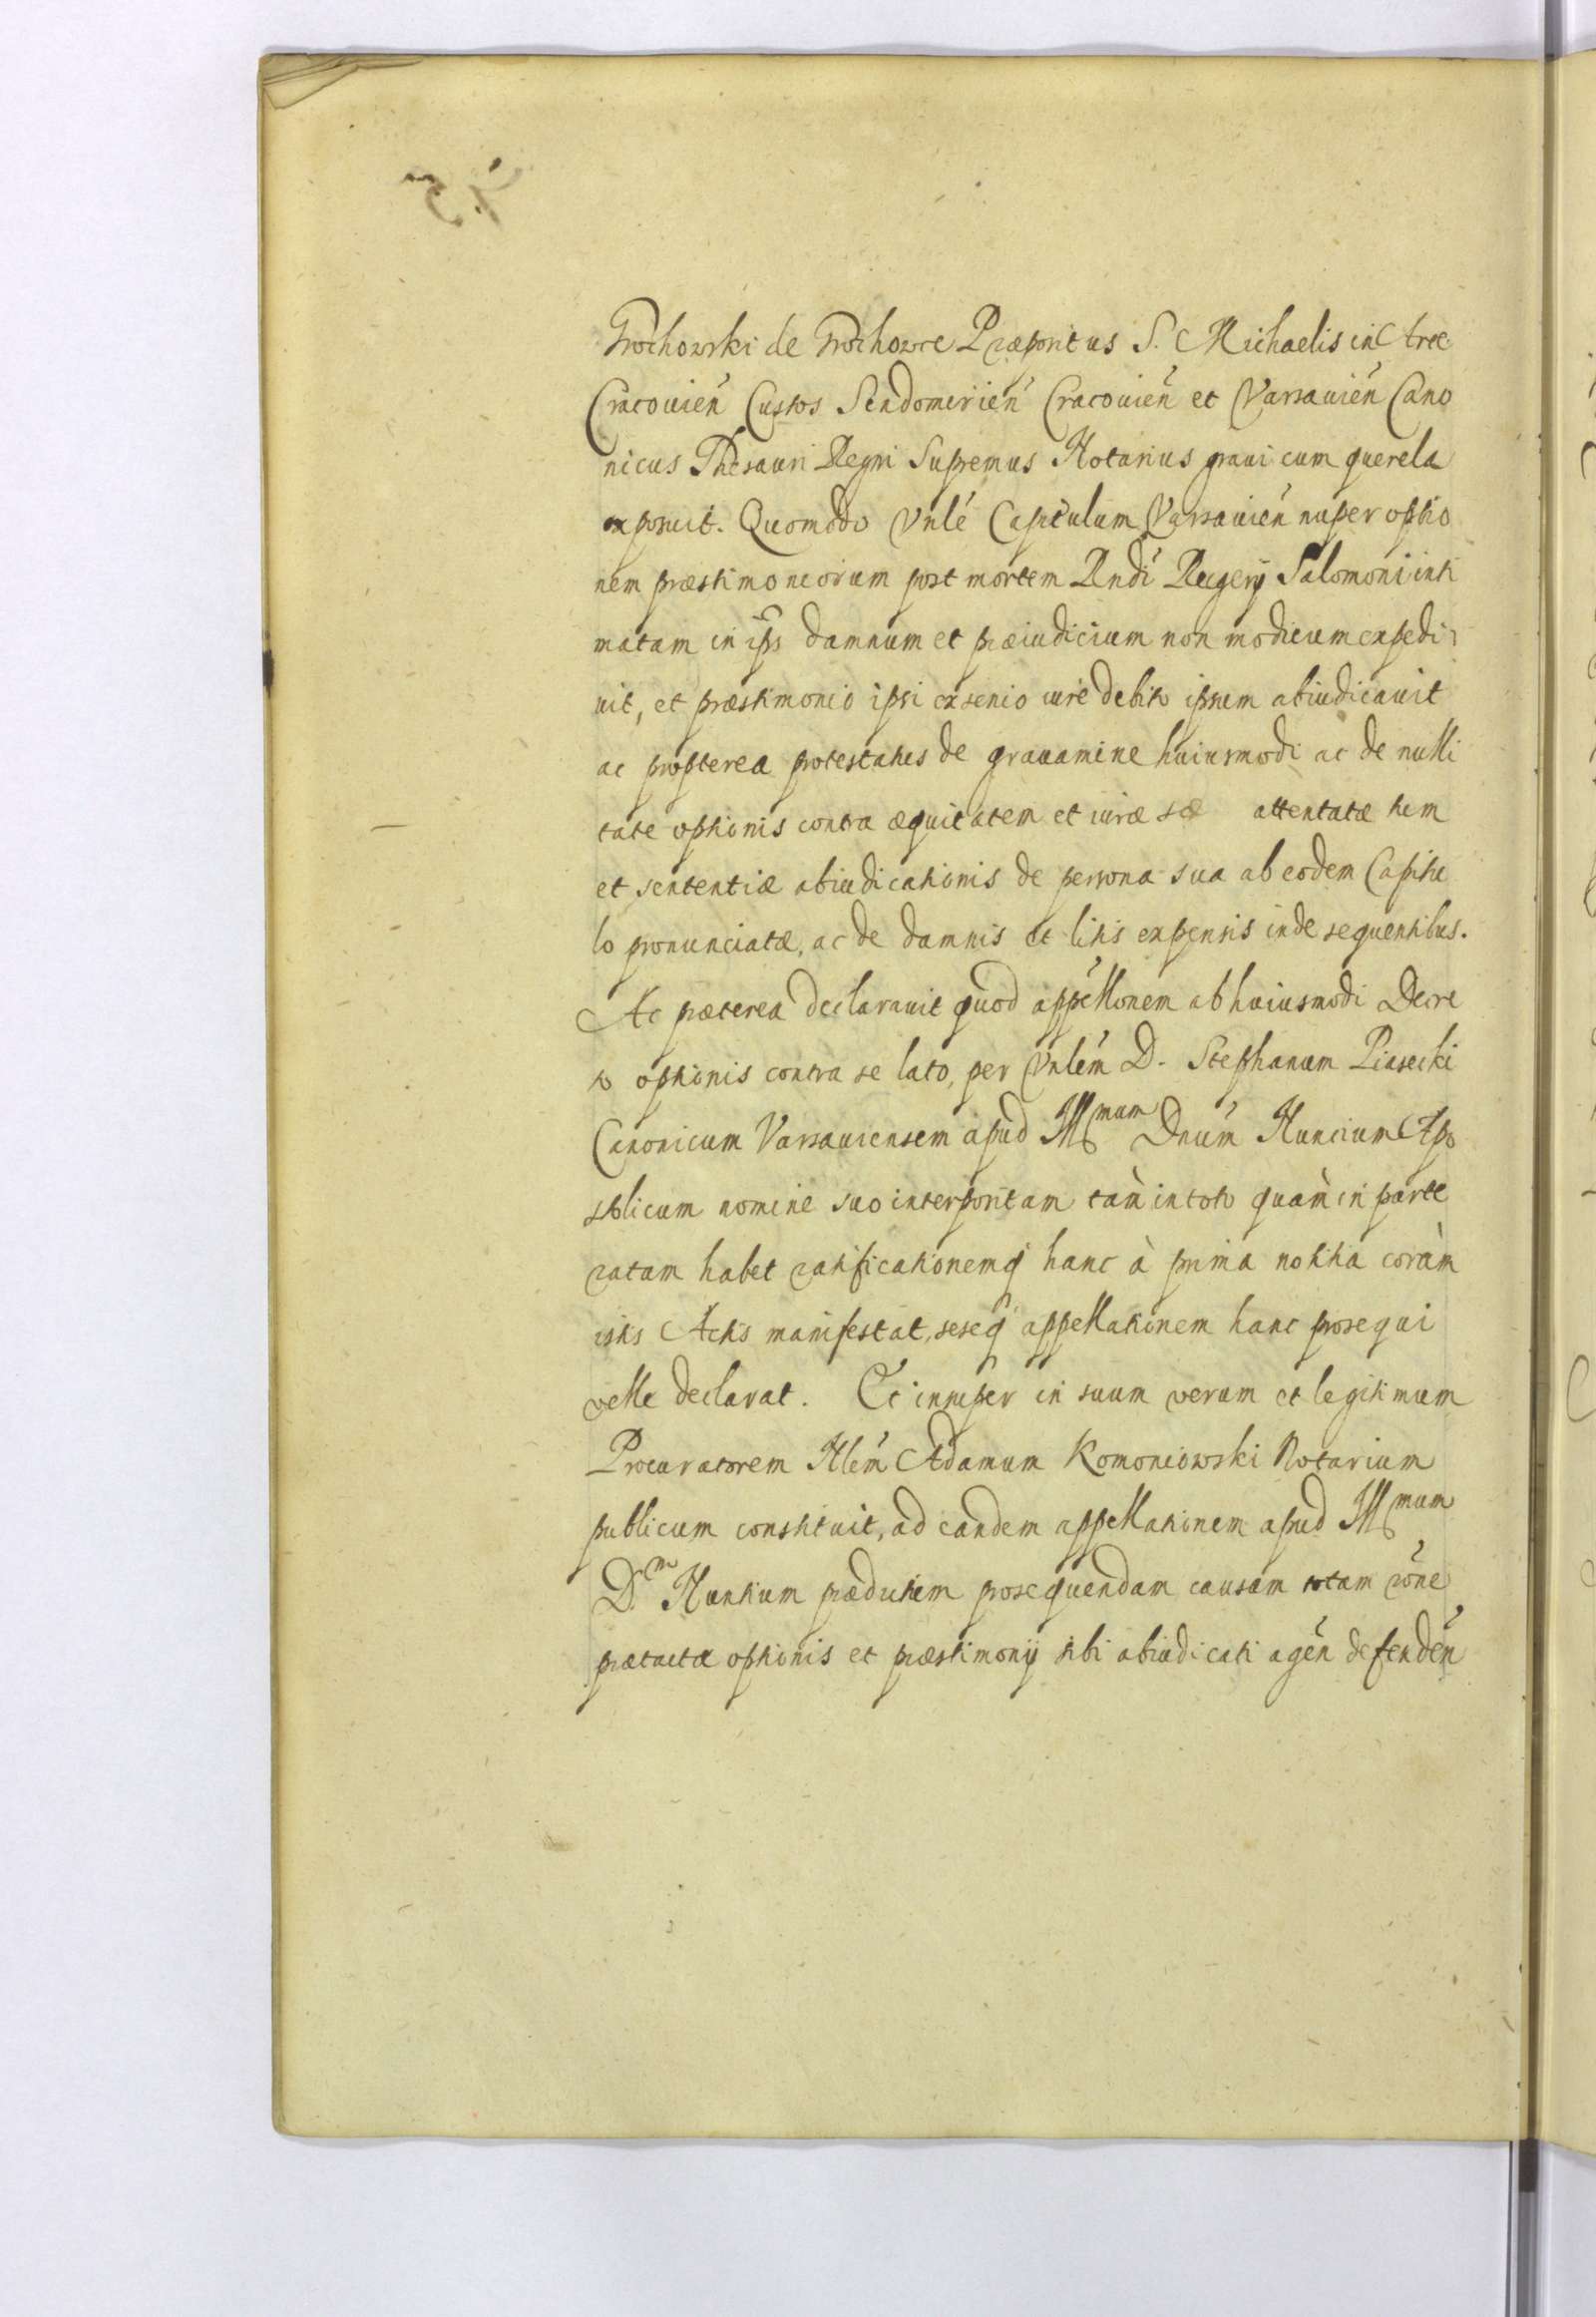 Grochowski de Grochowce Præpositus S. Michaelis in Arce
Cracouień Custos Sendomirień Cracouień et Varsauień Cano
nicus Thesauri Regni Supremus Notarius graui cum querela
exposuit. Quomodo Vnlé Capitulum Varsauień nuper optio
nem præstimoneorum post mortem Rndi Rugerÿ Salomoni inti
matam in ips damnum et præiudicium non modicum expedi
uit, et præstimonio ipsi ex senio iure debito ipsum abiudicauit
ac propterea protestatus de grauamine huiusmodi ac de nulli
tate optionis contra æquitatem et iura attentatæ tum
et sententiæ abiudicationis de persona sua ab eodem Capitu
lo pronunciatæ, ac de damnis et litis expensis inde sequentibus.
Ac præterea declarauit quod appellonem ab huiusmodi Decre
to optionis contra se lato, per Vnlém D. Stephanum Piasecki
Canonicum Varsauiensem apud Illmum Dnúm Nuncium Apo
stolicum nomine suo interpositam tàm in toto quàm in parte
ratam habet ratificationemq hanc à prima notitia coràm
istis Actis manifestat, seseq appellationem hanc prosequi
velle declarat. Et insuper in suum verum et legitimum
Procuratorem Nlém Adamum Komoniowski Notarium
publicum constituit, ad eandem appellationem apud Illmum
D.m Nuntium prædictum prosequendam causam totam róne
prætactæ optionis et præstimonÿ sibi abiudicati agén defendén